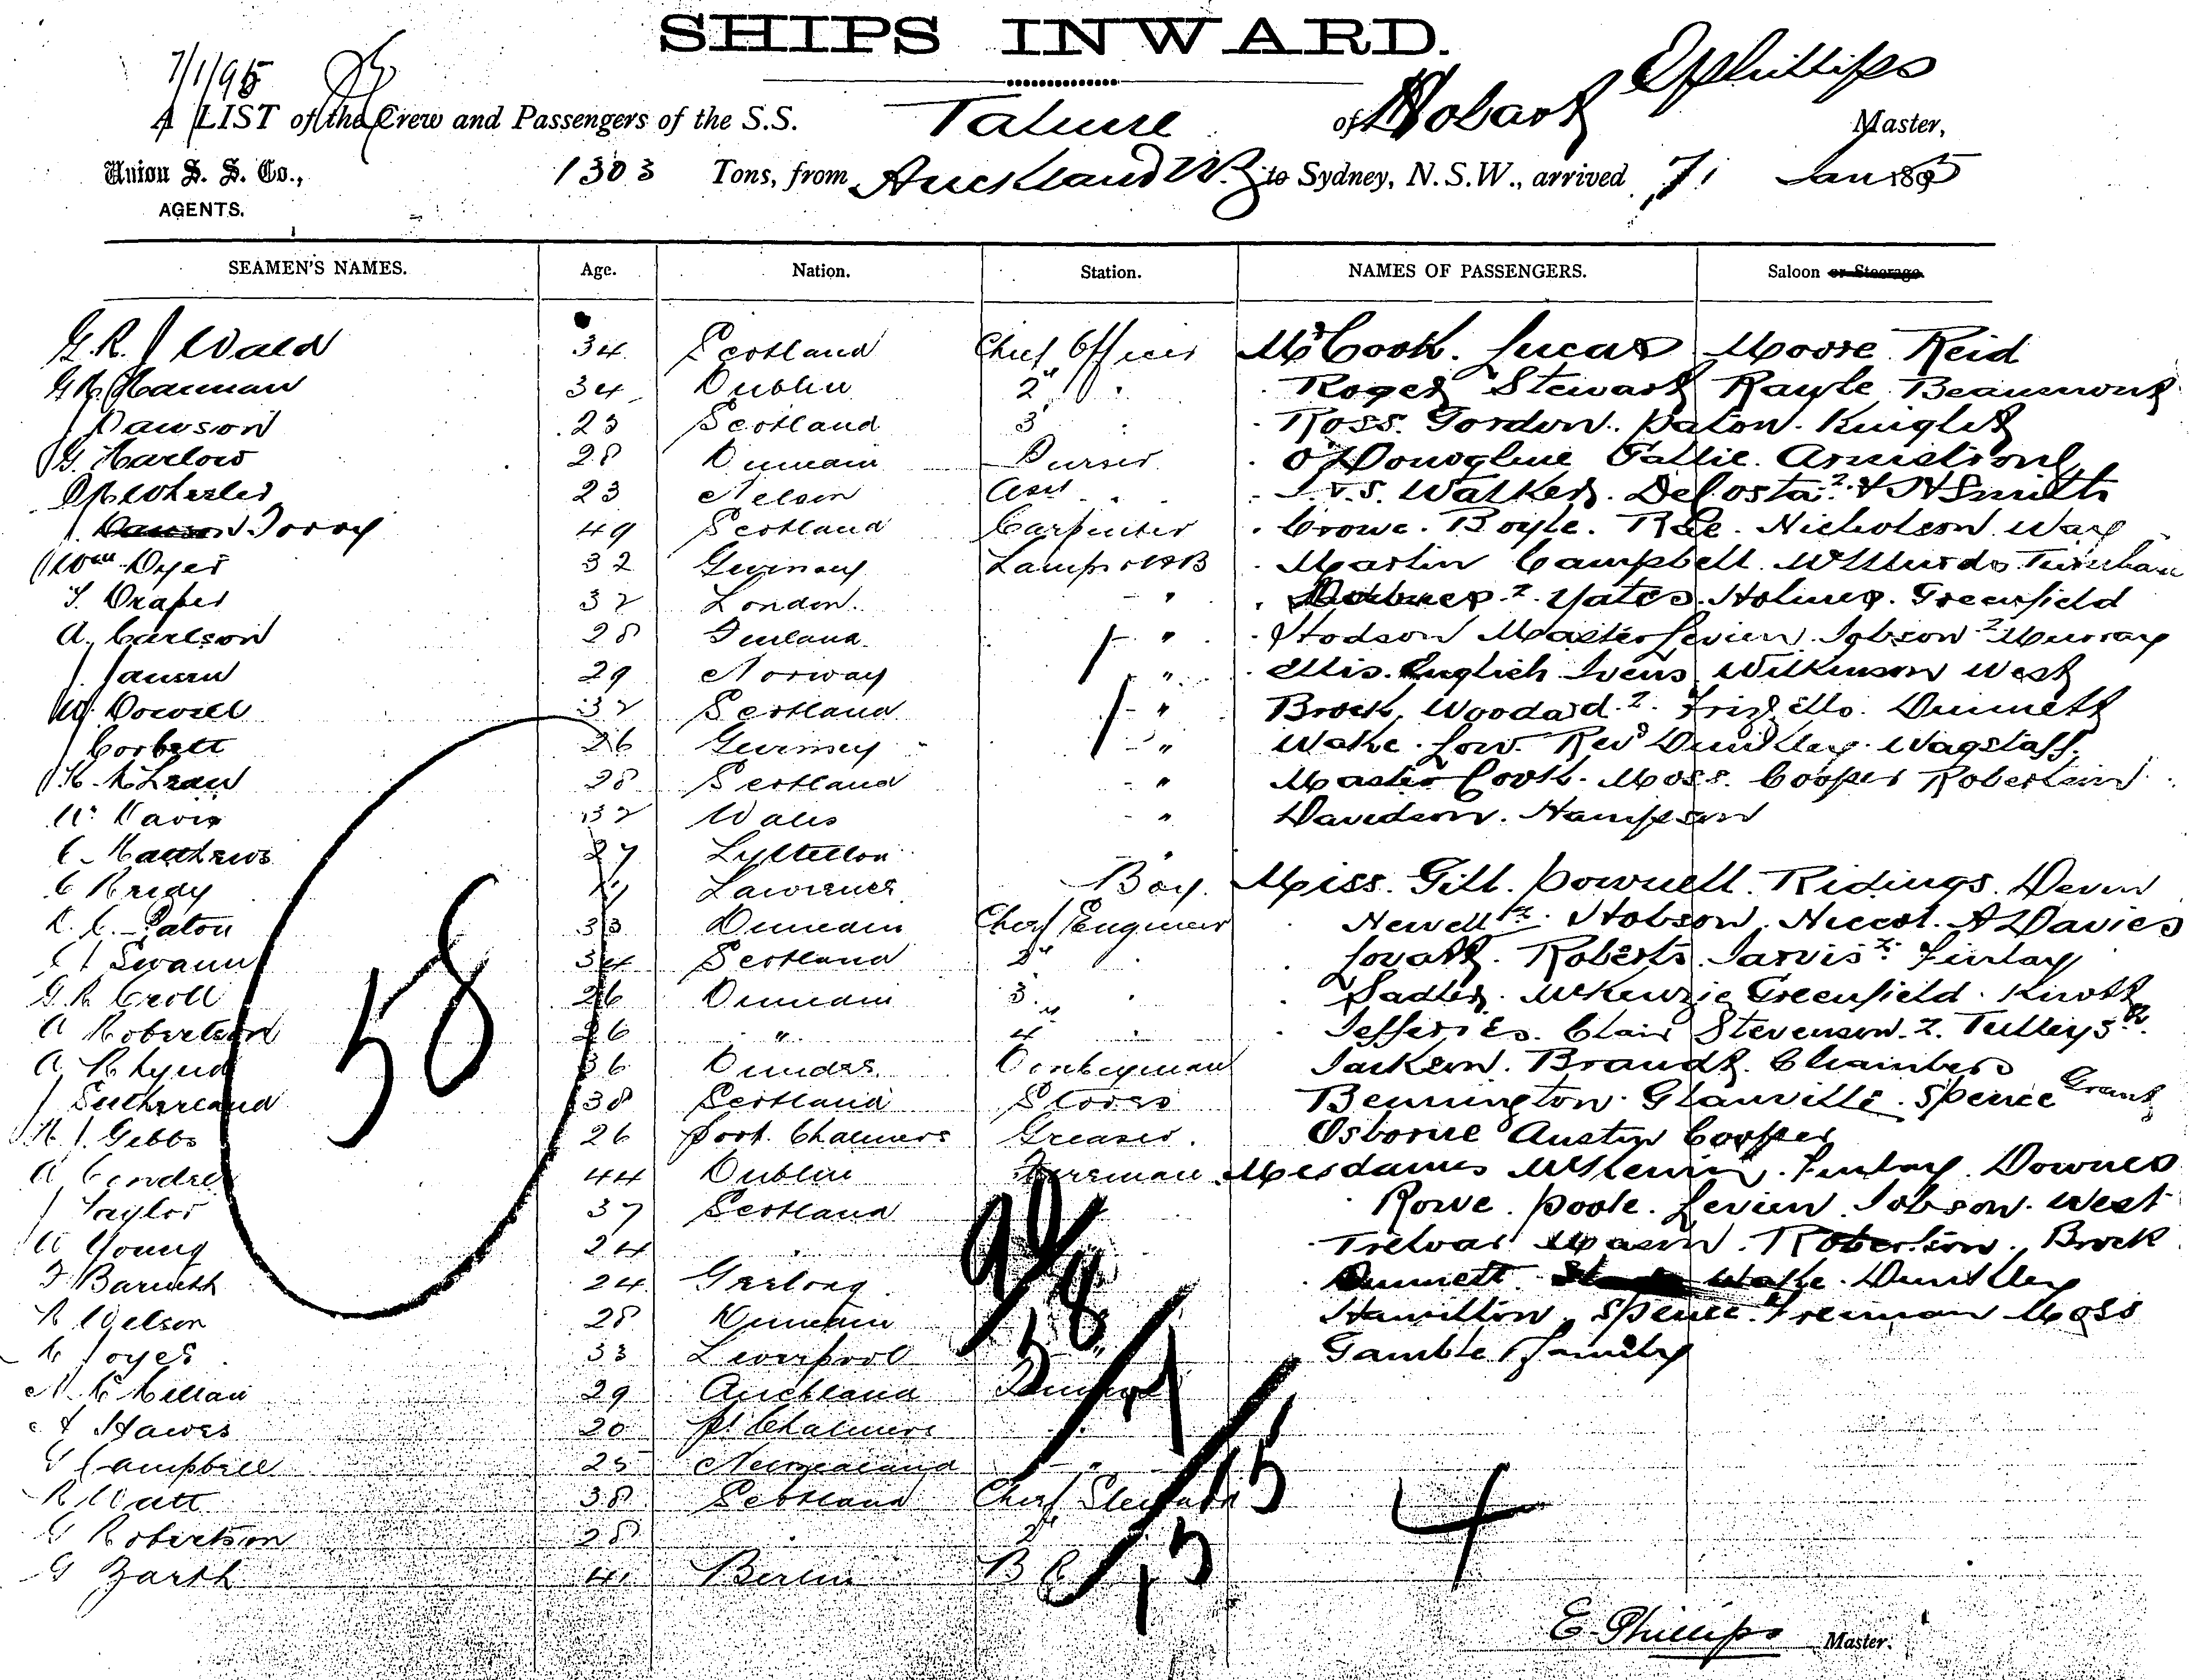 SHIPS INWARD.
7/1/95
E Phillips
A LIST of the Crew and Passengers of the S.S. Talune of Hobart Master,
Union S. S. Co., 1303 Tons, from Auckland N.Z. to Sydney, N.S.W., arrived 7 Jan 1895
AGENTS.
SEAMEN'S NAMES. Age. Nation. Station. NAMES OF PASSENGERS. Saloon or Steerage.
G. R. J Wald 34 Scotland Chief Officer Mr Cook. Lucas Moore Reid
34 Dublin 2" Roger Stewart Rayle Beaumont
J Dawson 23 Scotland 3 Ross. Gordon. Paton. Knight
G. Harlow 28 Dunedin Purser O'Donoghue Fallie. Armstrong
Wheeler 23 Nelson Asst I.V.S. Walker. DeCosta. 2. H Smith
Dawson Torry 49 Scotland Carpenter Crowe. Boyle. Rae. Nicholson Way
Wm Dyer 32 Guernsey Lamps & AB Martin Campbell. McMurdo. Turnham
T. Draper 32 London. " 2. Yates. Holmes. Greenfield
A. Carlson 28 Finland. " Hodson Master Levien. Jobson 2 Murray
J. Jansen 29 Norway " Ellis. English Ivens Wilkinson West
W. Dowell 32 Scotland " Brock. Woodard. 2. Dunnett
J Corbett 26 Guernsey " Wake. Low. Revd Dunkley. Wagstaff.
McLean 28 Scotland " Master Cook. Moss. Cooper Robertson
W. Davis 32 Wales " Davidson. Hampson
C. Matthews 27 Lyttelton "
C Reidy 17 Lawrence Boy. Miss. Gill. Pownell. Ridings. Devin
D. C. Paton 33 Dunedin Chief Engineer Newell 2. Hobson. Niccol. A Davies
J Swann 34 Scotland 2" Lovatt. Roberts. Jarvis 2. Finlay
G. R Croll 26 Dunedin 3" Sadler. McKenzie Greenfield. Knott
A Robertson 26 " 4" Jefferies. Clair Stevenson. 2. Tulleys
A Rhynd 36 Dundee Donkeyman Jackson. Brandt. Chambers
J Sutherland 38 Scotland Stores Bennington. Glanville. Spence Grant
Gibbs 26 Port Chalmers Greaser. Osborne Austin Cooper
A 44 Dublin Fireman Mesdames Finlay. Downes
J Taylor 37 Scotland Rowe. Poole. Levien. Jobson. West
W Young 24 Trelvar Mason. Robertson. Brock
F Barnett 24 Geelong Dunnett Wake. Dunkley
Nelson 28 Dunedin Hamilton. Spence. Freeman Moss
33 Liverpool Gamble & family
29 Auckland
Hawes 20 Pt Chalmers
G Campbell 25 New Zealand "
R Watt 38 Scotland Chief Steward
G Robertson 28 2"
G Zarth 41 Berlin B C
58
98
58
7/1
15
15
4
E. Phillips Master.